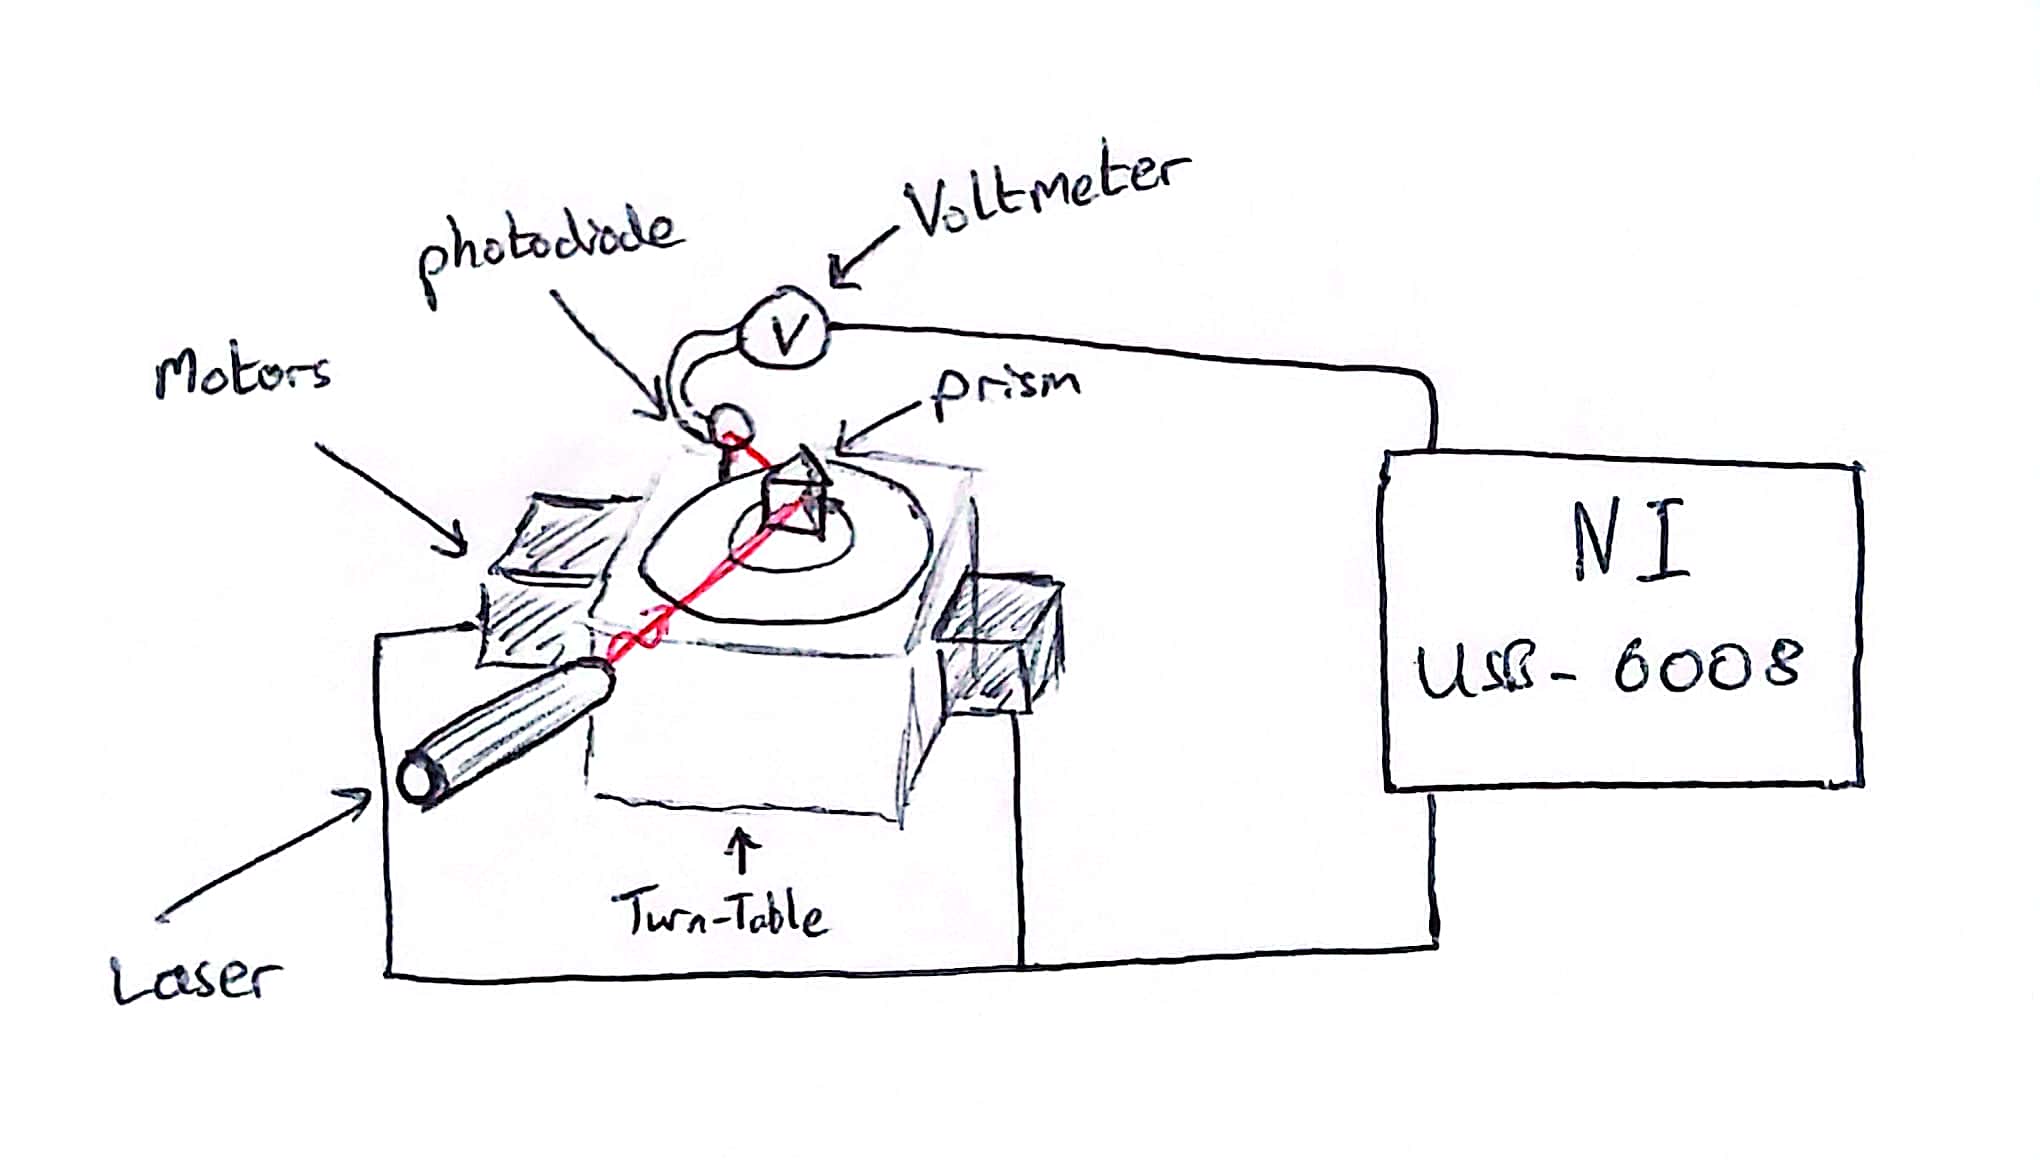 Voltmeter
photodiode
V
Motors
prism
NI
USB-6008
Turn-Table
Laser